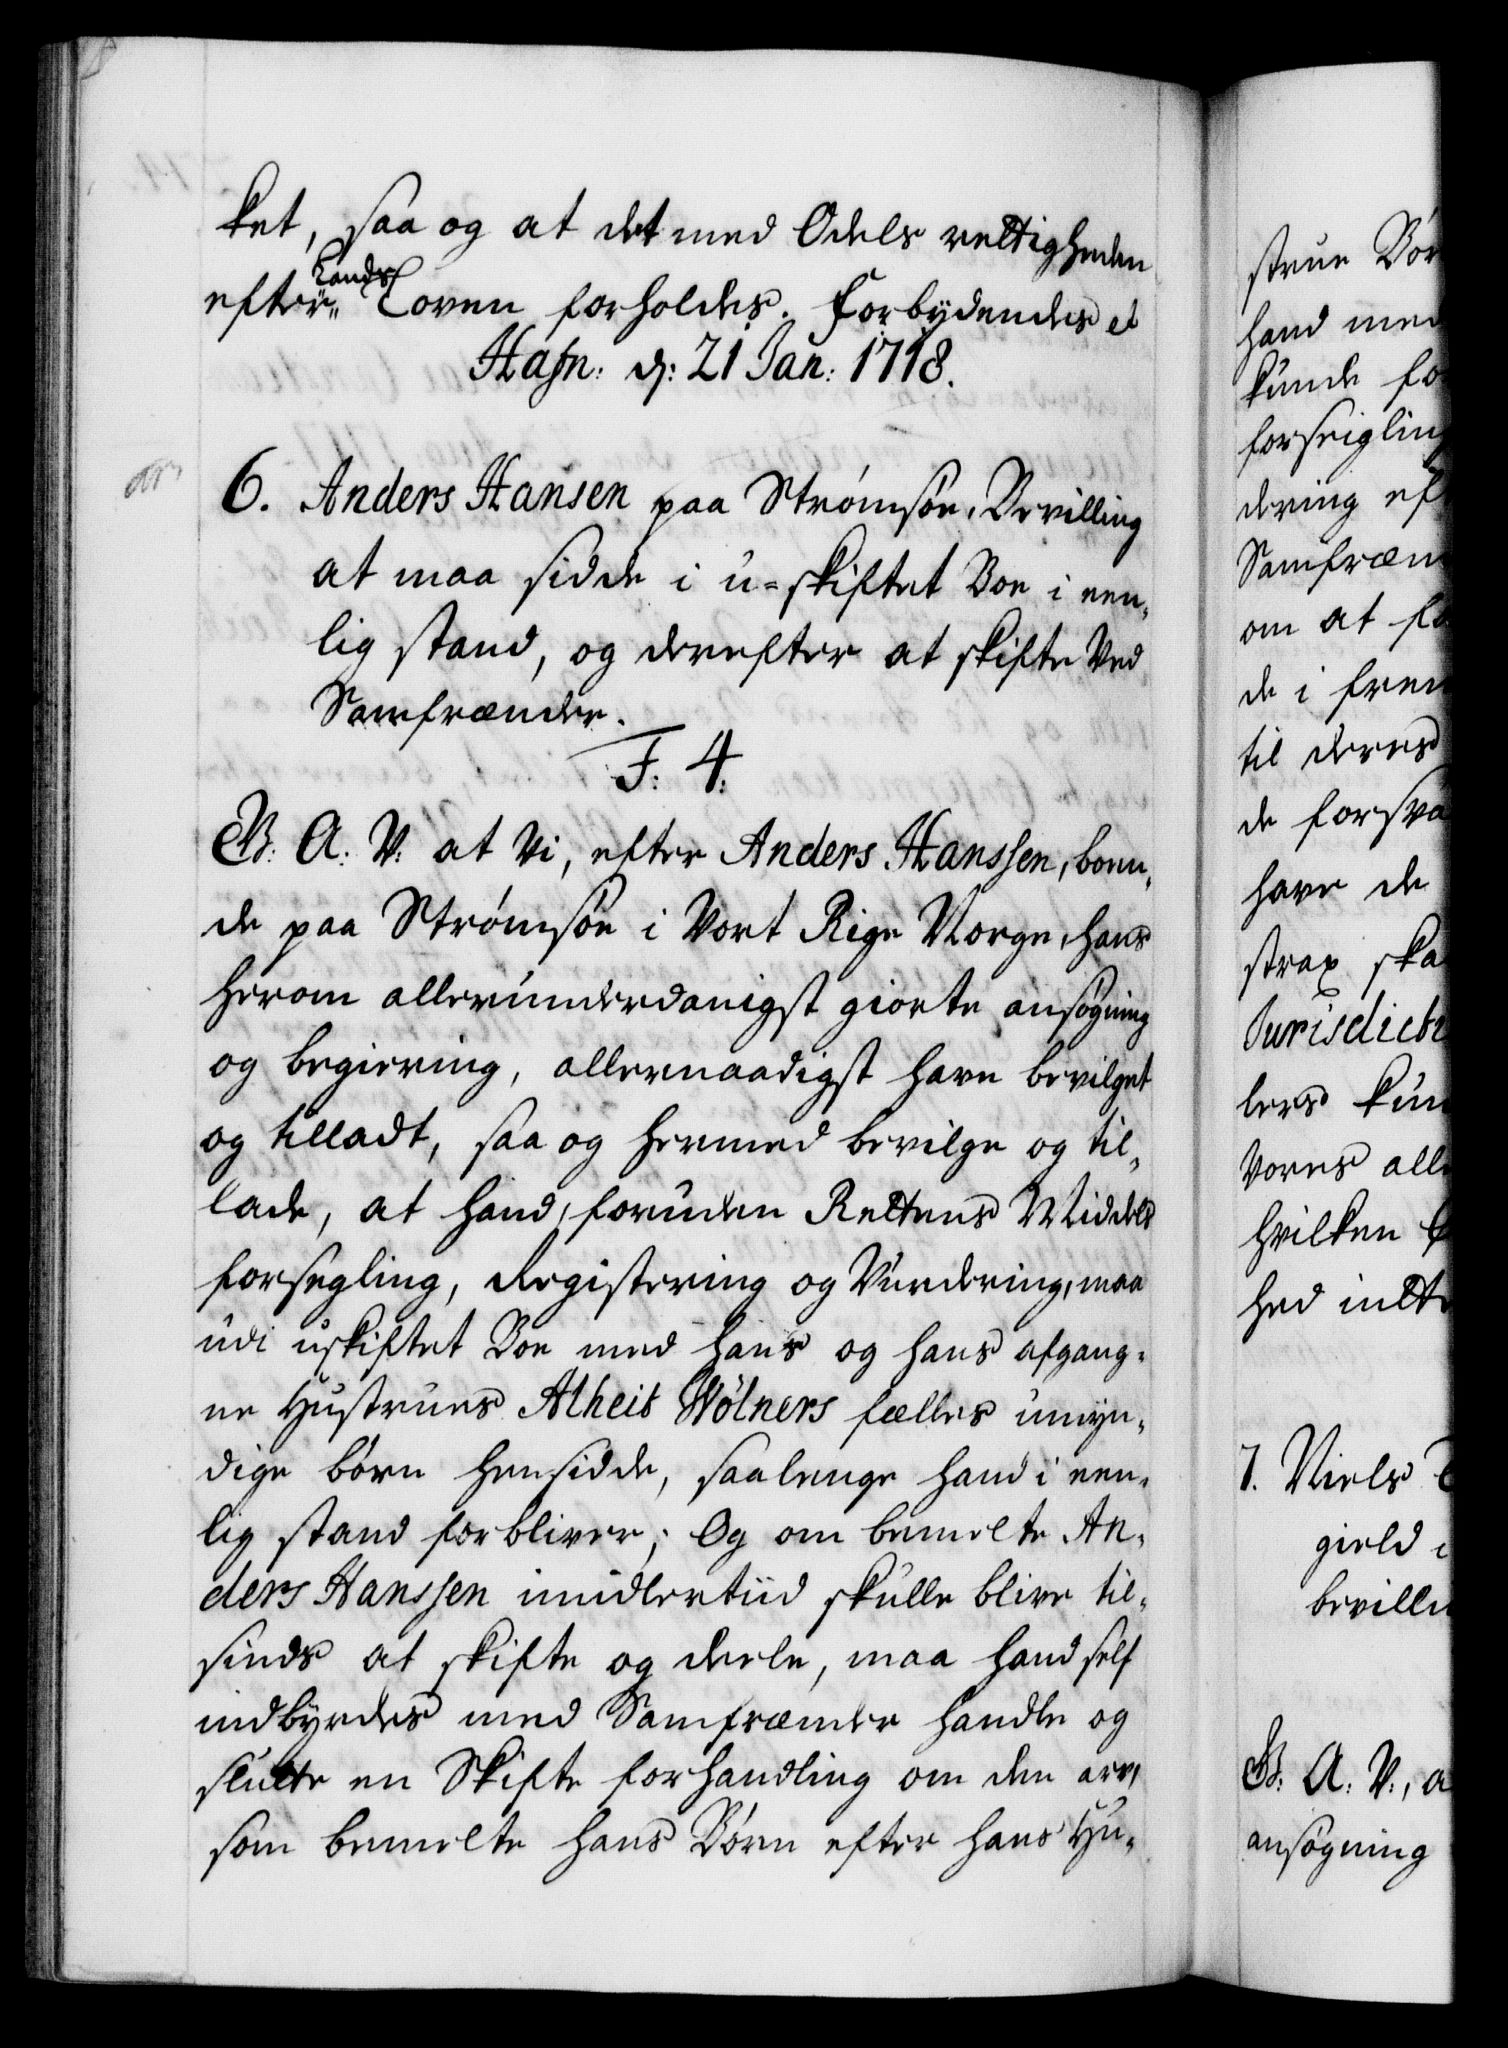 ket, saa og at det med Odels rettigheden
efter Lands Loven forholdes. Forbydendes et
Hafn: d: 21 Jan: 1718.
6. Anders Hansen paa Strømsøe, Bevilling
at maa sidde i u-skiftet Boe i een-
lig stand, og derefter at skifte Ved
Samfrænder.
F: 4:
G: A: V: at Vi, efter Anders Hanssen, boen-
de paa Strømsøe i Vort Rige Norge, hans
herom allerunderdanigst giorte ansøgning
og begiering, allernaadigst have bevilget
og tilladt, saa og hermed bevilge og til-
lade, at hand, foruden Rettens Middels
forsegling, Registering og Vurdering, maa
udi uskiftet Boe med hans og hans afgang-
ne Hustrues Alheit Wölners fælles umyn-
dige børn hensidde, saalenge hand i een-
lig stand forbliver; Og om bemelte An-
ders Hanssen imidlertiid skulle blive til-
sinds at skifte og deele, maa hand self
indbyrdes med Samfrænder handle og
slutte en Skifte forhandling om den arv,
som bemelte hans Børn efter hans Hu-
strue Bør
hand med
kunde fo
forseigling
dering ef
Samfræn
om at fo
de i frem
til deres
de forsva
have de
strax ska
Jurisdicti
lers kun
Vores alle
hvilken
hed intte
7. Niels
gield i
bevilli
G: A: V:, a
ansøgning